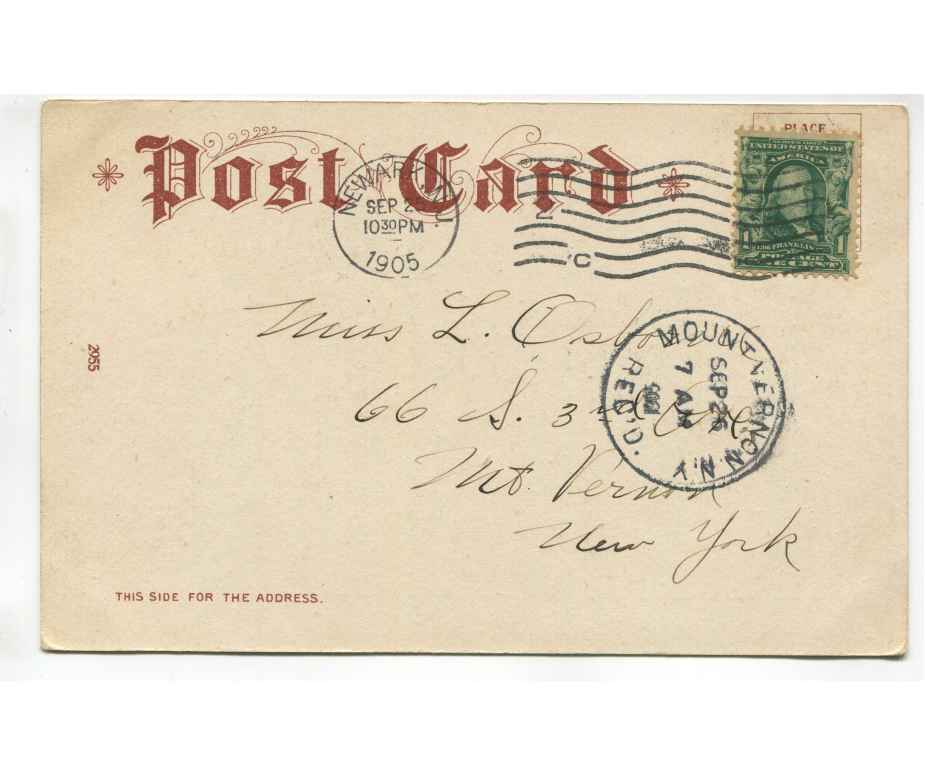 Post Card
PLACE
NEWARK, N.J.
SEP 2
10 30 PM
1905
C
UNITED STATES OF
AMERICA
1 FRANKLIN 1
POSTAGE
ONE CENT
Miss L. Osborne
66 S. 3rd Ave
Mt. Vernon
New York
MOUNT VERNON N.Y.
SEP 26
7 AM
REC'D.
2955
THIS SIDE FOR THE ADDRESS.